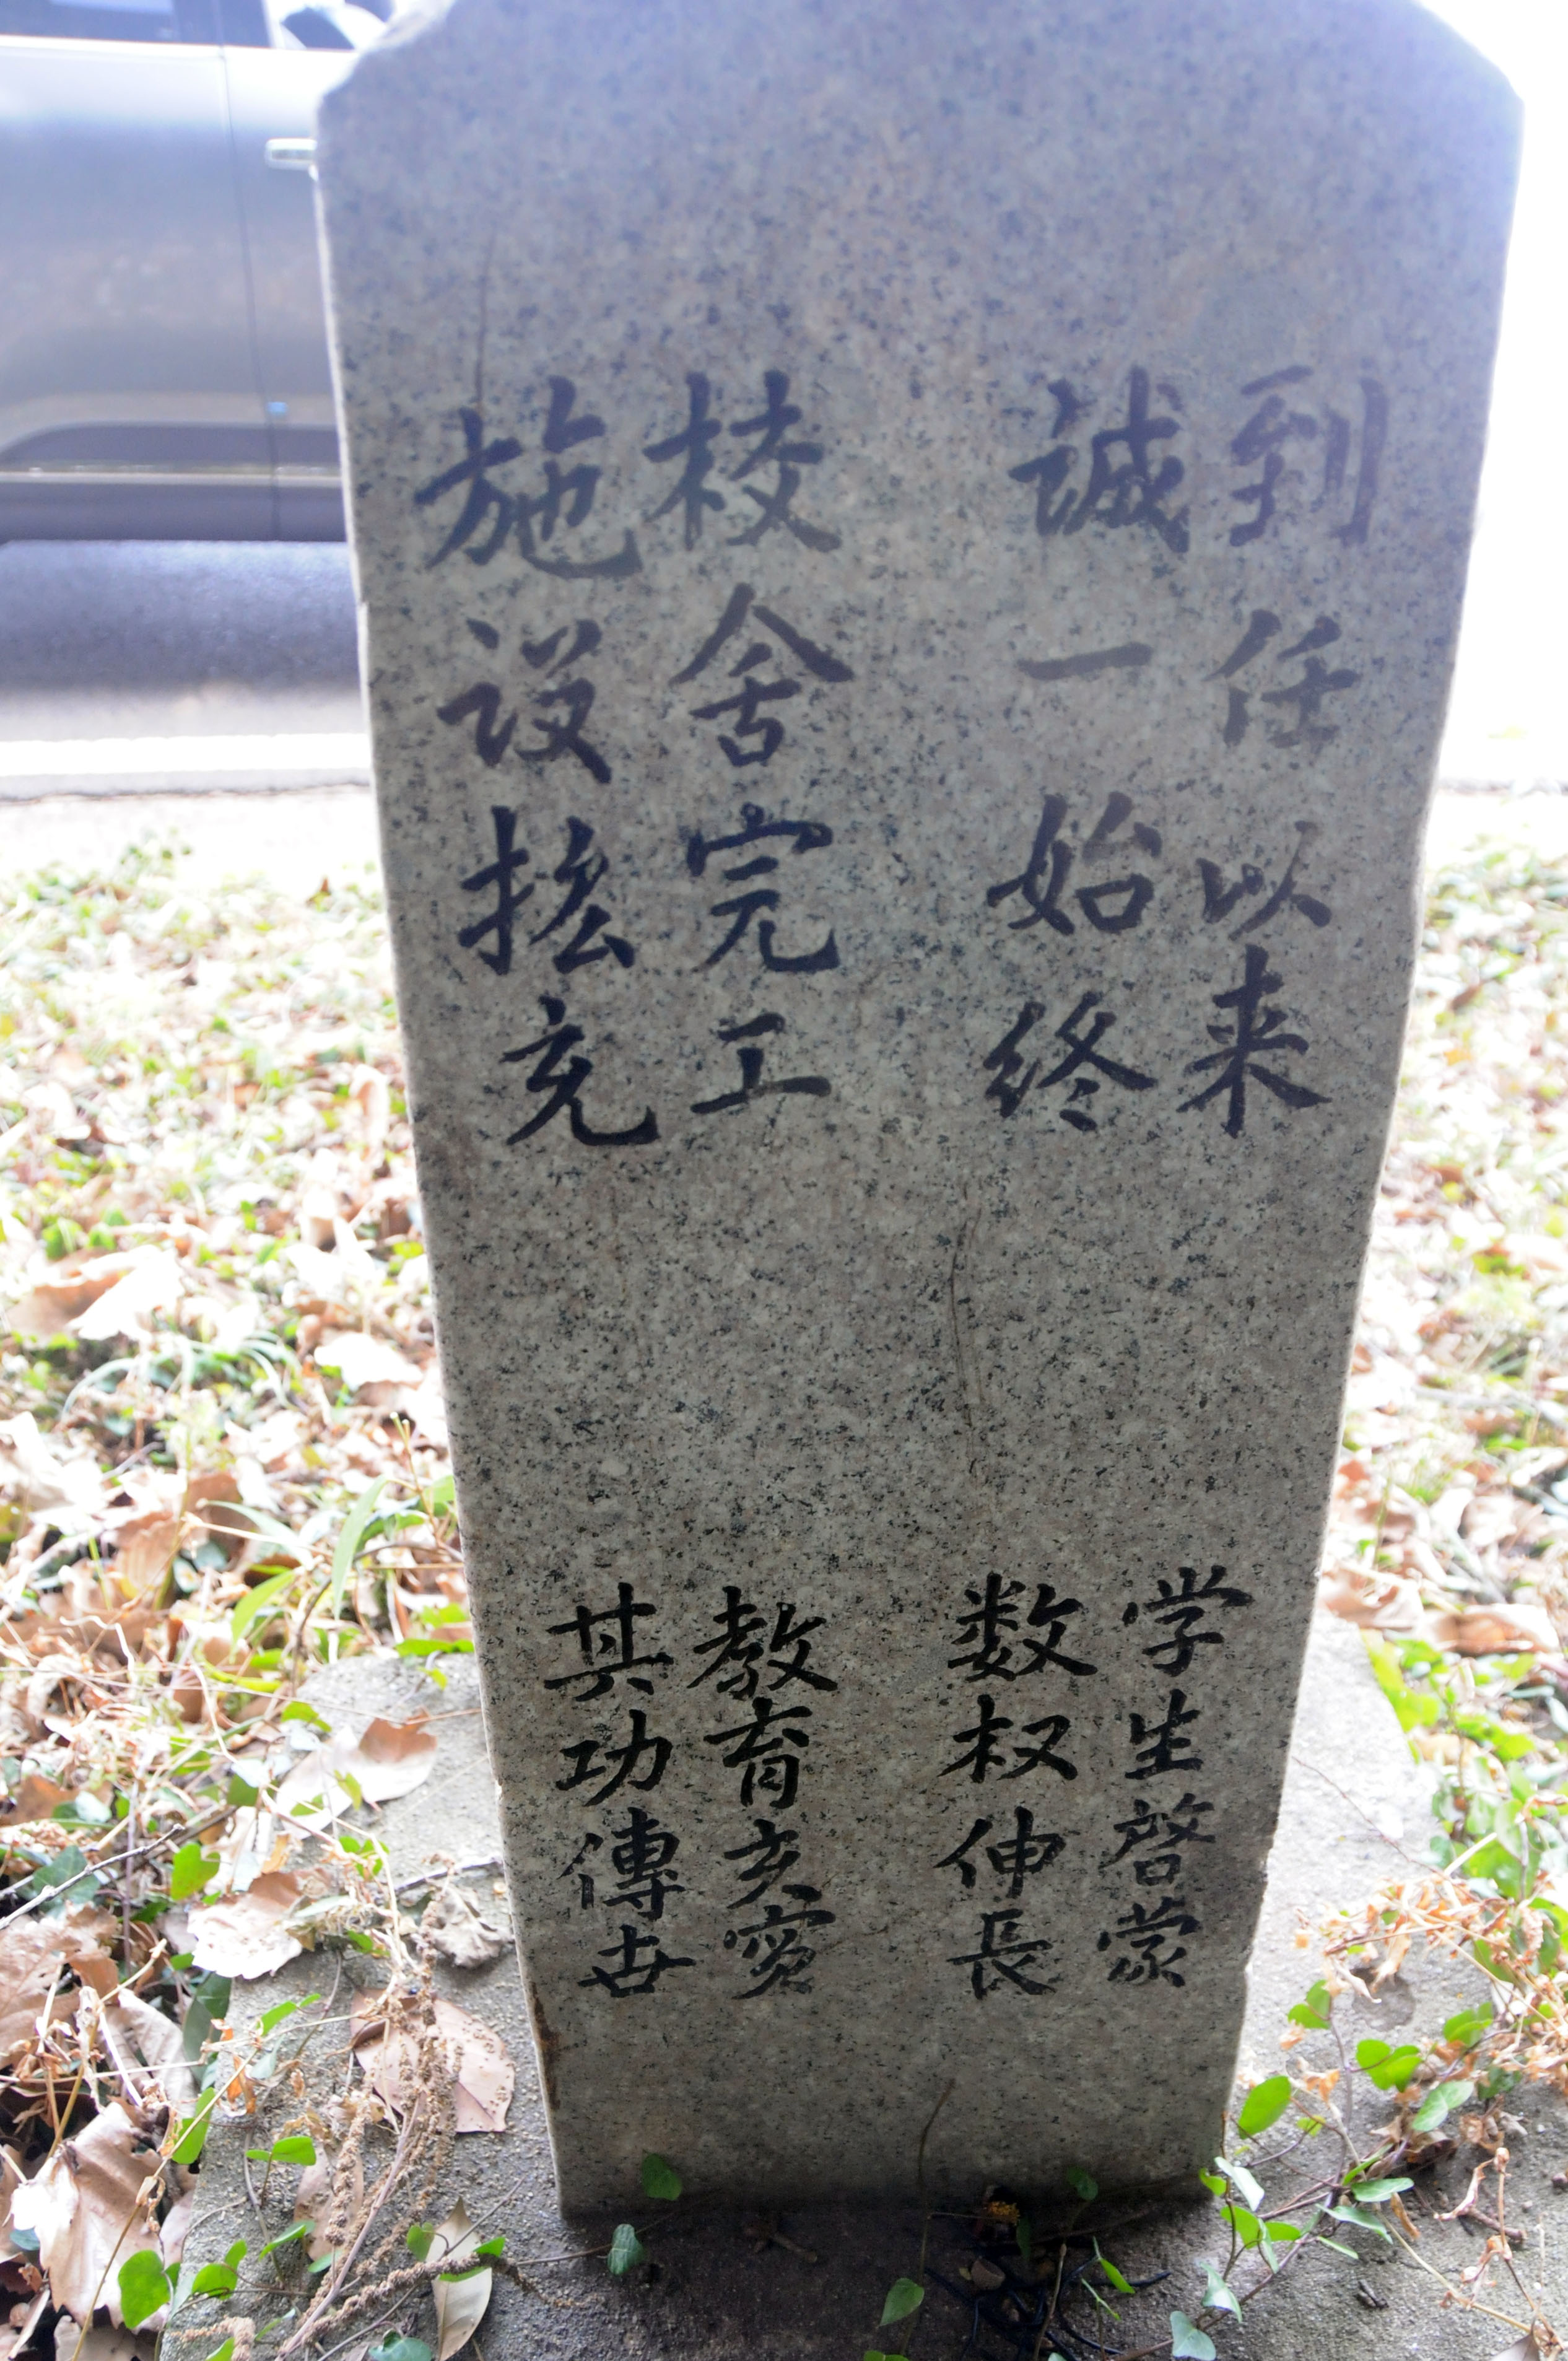 到任以来 学生啓蒙
誠一始終 数权伸長
校舍完工 教育
施设拡充 其功傳世